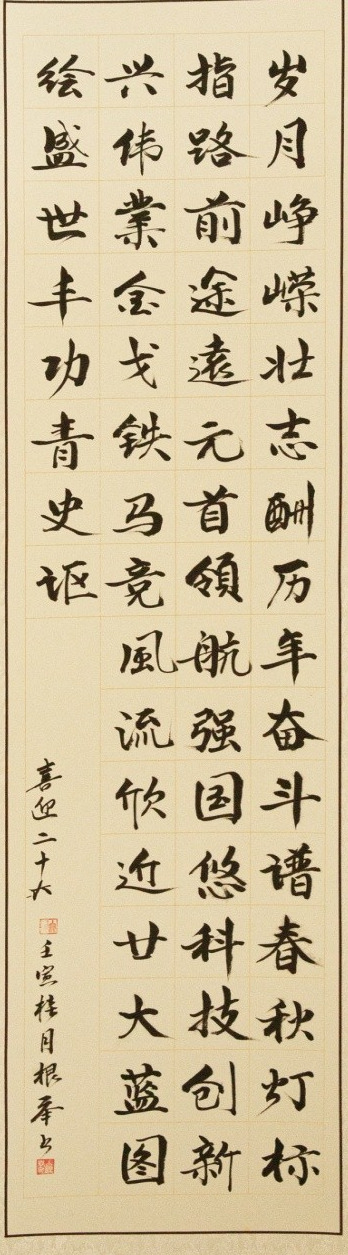 岁月峥嵘壮志酬历年奋斗谱春秋灯标
指路前途遠元首領航强国悠科技创新
兴伟業金戈铁马竞風流欣近廿大蓝图
绘盛世丰功青史讴
喜迎二十大
壬寅桂月根